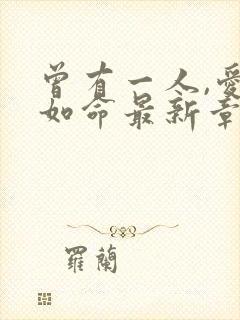 曾有一人,愛
如命最新章
羅蘭